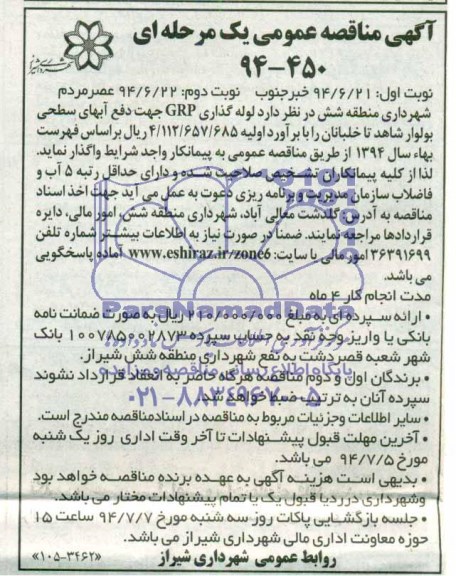 آگهی مناقصه عمومی یک مرحله ای
۹۴-۴۵۰
نوبت اول: ۹۴/۶/۲۱ خبرجنوب نوبت دوم: ۹۴/۶/۲۲ عصرمردم
شهرداری منطقه شش در نظر دارد لوله گذاری GRP جهت دفع آبهای سطحی
بولوار شاهد تا خلبانان را با برآورد اولیه ۴/۱۱۲/۶۵۷/۶۸۵ ریال براساس فهرست
بهاء سال ۱۳۹۴ از طریق مناقصه عمومی به پیمانکار واجد شرایط واگذار نماید.
لذا از کلیه پیمانکاران تشخیص صلاحیت شده و دارای حداقل رتبه ۵ آب و
فاضلاب سازمان مدیریت و برنامه ریزی دعوت به عمل می آید جهت اخذ اسناد
مناقصه به آدرس: گلدشت معالی آباد، شهرداری منطقه شش، امور مالی، دایره
قراردادها مراجعه نمایند. ضمناً در صورت نیاز به اطلاعات بیشتر شماره تلفن
۳۶۳۹۱۶۹۹ امور مالی یا سایت: www.eshiraz.ir/zone6 آماده پاسخگویی
می باشد.
مدت انجام کار ۴ ماه
• ارائه سپرده ای به مبلغ ۲۱۰/۰۰۰/۰۰۰ ریال به صورت ضمانت نامه
بانکی یا واریز وجه نقد به حساب سپرده ۱۰۰۷۸۵۰۰۲۸۷۳ بانک
شهر شعبه قصردشت به نفع شهرداری منطقه شش شیراز.
• برندگان اول و دوم مناقصه هرگاه حاضر به انعقاد قرارداد نشوند
سپرده آنان به ترتیب ضبط خواهد شد.
• سایر اطلاعات وجزئیات مربوط به مناقصه در اسنادمناقصه مندرج است.
• آخرین مهلت قبول پیشنهادات تا آخر وقت اداری روز یک شنبه
مورخ ۹۴/۷/۵ می باشد.
• بدیهی است هزینه آگهی به عهده برنده مناقصه خواهد بود
وشهرداری در رد یا قبول یک یا تمام پیشنهادات مختار می باشد.
• جلسه بازگشایی پاکات روز سه شنبه مورخ ۹۴/۷/۷ ساعت ۱۵
حوزه معاونت اداری مالی شهرداری شیراز می باشد.
روابط عمومی شهرداری شیراز
«۱۰۵-۳۴۶۲»
ParsNamadData
پایگاه اطلاع رسانی مناقصه و مزایده
۰۲۱-۸۸۳۴۹۶۷۰-۵